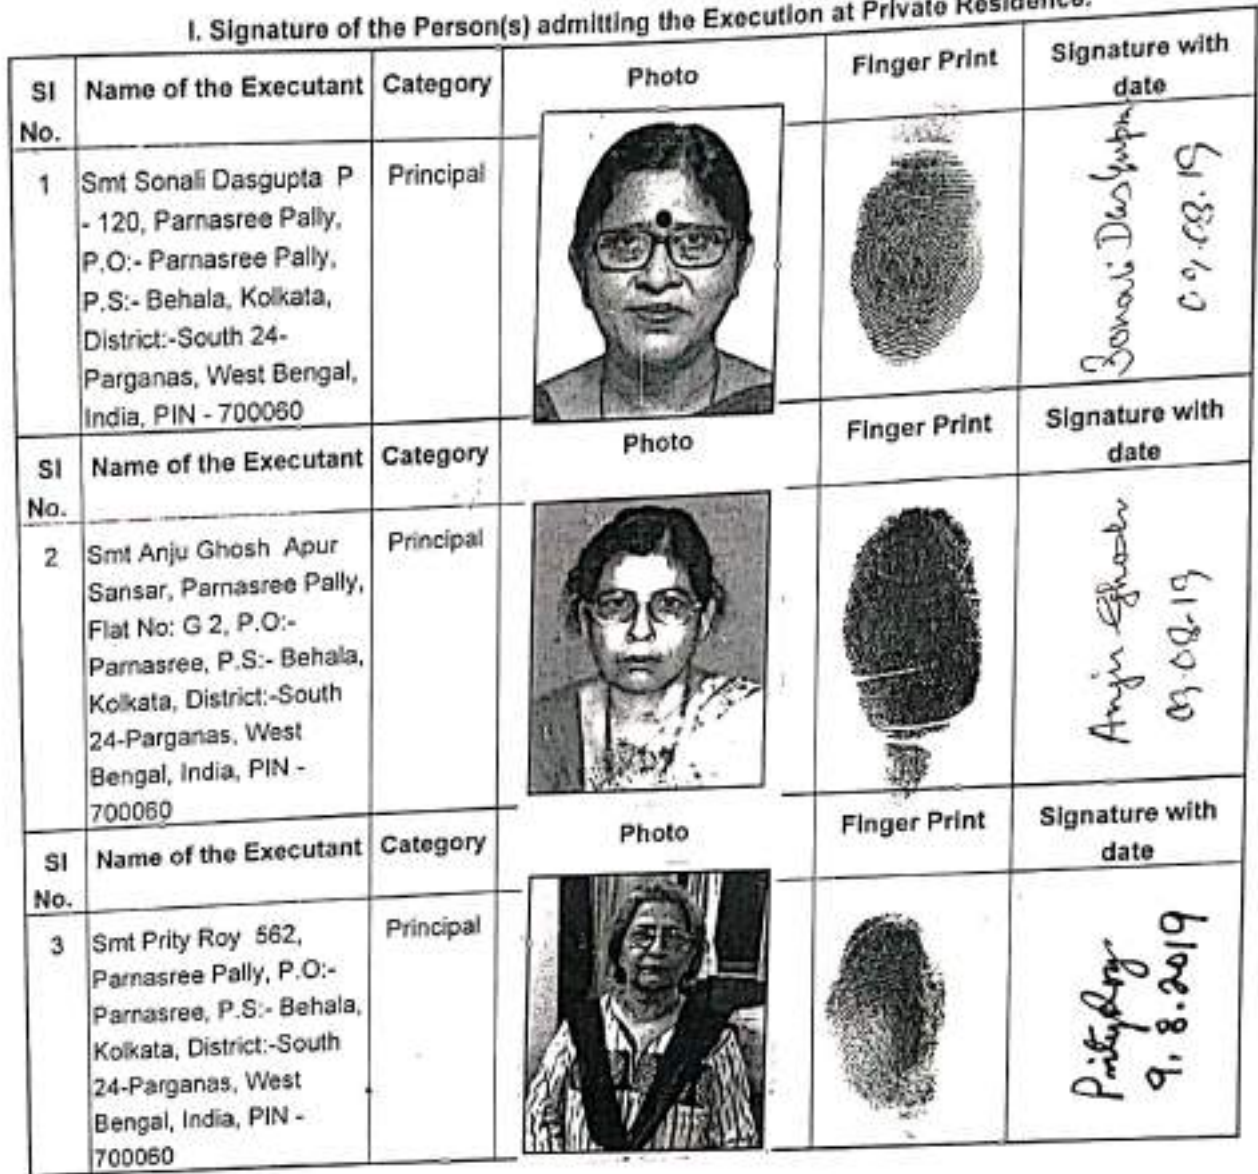 I. Signature of the Person(s) admitting the Execution at Private Residence.
SI No. Name of the Executant Category Photo Finger Print Signature with date
1 Smt Sonali Dasgupta P Principal
- 120, Parnasree Pally,
P.O:- Parnasree Pally,
P.S:- Behala, Kolkata,
District:-South 24-
Parganas, West Bengal,
India, PIN - 700060
Sonali Dasgupta
SI No. Name of the Executant Category Photo Finger Print Signature with date
2 Smt Anju Ghosh Apur Principal
Sansar, Parnasree Pally,
Flat No: G 2, P.O:-
Parnasree, P.S:- Behala,
Kolkata, District:-South
24-Parganas, West
Bengal, India, PIN -
700060
Anju Ghosh
SI No. Name of the Executant Category Photo Finger Print Signature with date
3 Smt Prity Roy 562, Principal
Parnasree Pally, P.O:-
Parnasree, P.S:- Behala,
Kolkata, District:-South
24-Parganas, West
Bengal, India, PIN -
700060
Prity Roy
9.8.2019